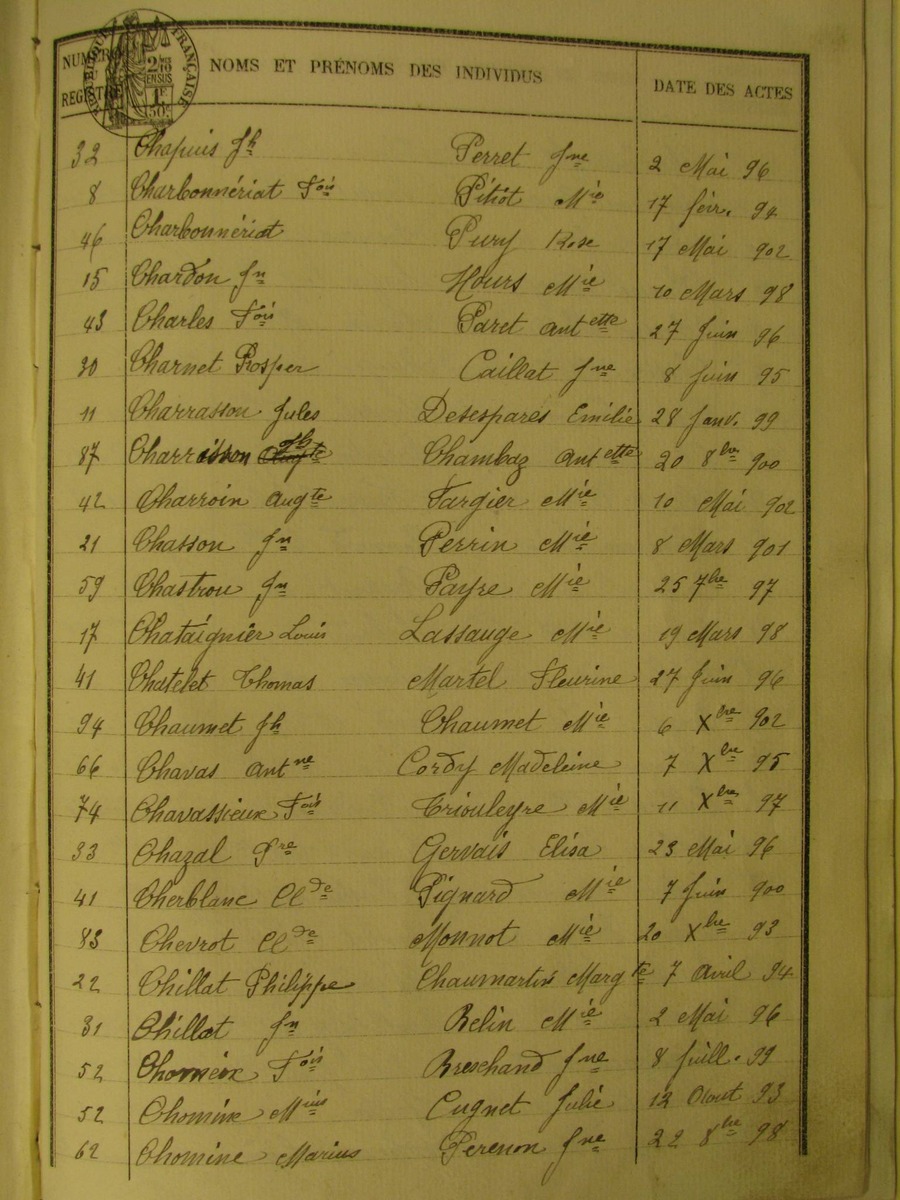 RÉPUBLIQUE FRANÇAISE
2/10 EN SUS
1F 50c
NUMÉRO REGISTRE NOMS ET PRÉNOMS DES INDIVIDUS DATE DES ACTES
32 Chapuis Jh Perret Jne 2 Mai 96
8 Charbonnériat Fois Pitiot Mie 17 févr. 94
46 Charbonnériat Pury Rose 17 Mai 902
15 Chardon Jn Hours Mie 10 Mars 98
43 Charles Fois Paret Antette 27 Juin 96
30 Charnet Prosper Caillat Jne 8 Juin 95
11 Charrasson Jules Desesparès Emilie 28 Janv. 99
87 Charrasson Jh Chambaz Antette 20 8bre 900
42 Charroin Augte Fargier Mie 10 Mai 902
21 Chasson Jn Perrin Mie 8 Mars 901
59 Chastrou Jn Payre Mie 25 7bre 97
17 Chataignier Louis Lassauge Mie 19 Mars 98
41 Chatelet Thomas Martel Fleurine 27 Juin 96
94 Chaumet Jh Chaumet Mie 6 Xbre 902
66 Chavas Antne Cordy Madeleine 7 Xbre 95
74 Chavassieux Fois Triouleyre Mie 11 Xbre 97
33 Chazal Pre Gervais Elisa 23 Mai 96
41 Cherblanc Clde Pignard Mie 7 Juin 900
83 Chevrot Clde Monnot Mie 20 Xbre 93
22 Chillat Philippe Chaumartin Margte 7 Avril 94
31 Chillat Jn Relin Mie 2 Mai 96
52 Fois Breschand Jne 8 Juill. 99
52 Chomine Mius Cugnet Julie 12 Aout 93
62 Chomine Marius Perenon Jne 22 8bre 98